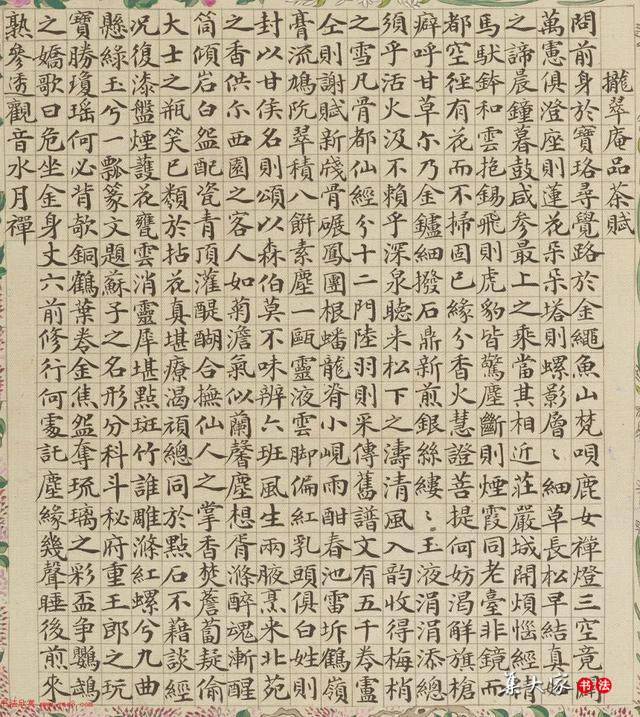 攏翠庵品茶賦
問前身於寶珞尋覺路於金繩魚山梵唄鹿女禪燈三空竟
萬憲俱澄座則蓮花朵朵塔則螺影層々細草長松早結真
之諦晨鐘暮鼓咸參最上之乘當其相近莊嚴城開煩惱經
馬馱鉢和雲抱錫飛則虎豹皆驚塵斷則煙霞同老臺非鏡而
都空徑有花而不掃固已緣分香火慧證菩提何妨渴解旗槍
癖呼甘草尓乃金鑪細撥石鼎新煎銀絲縷々玉液涓涓添總
須乎活火汲不賴乎深泉聽来松下之濤清風入韵收得梅梢
之雪凡骨都仙經分十二門陸羽則采傳舊譜文有五千卷盧
仝則謝賦新牋骨碾鳳團根蟠龍脊小峴雨酣春池雷坼鶴嶺
膏流鳩阬翠積八餅素塵一甌靈液雲脚偏紅乳頭俱白姓則
封以甘侯名則頌以森伯莫不味辨六班風生兩腋烹来北苑
之香供尓西園之客人如菊澹氣似蘭馨塵想胥滌醉魂漸醒
筒傾岩白盌配瓷青頂灌醍醐合撫仙人之掌香焚薝蔔疑偷
大士之瓶笑已類於拈花真堪療渴頑總同於點石不藉談經
況復漆盤煙護花甕雲消靈厙堪點斑竹誰雕滌紅螺兮九曲
懸綠玉兮一瓢篆文題蘇子之名形分科斗秘府重王郎之玩
寶勝瓊瑶何必背欹銅鶴葉卷金焦盌奪琉璃之彩盃争鸚鵡
之嬌歌曰危坐金身丈六前修行何處託塵緣幾聲睡後煎来
熟參透觀音水月禪
集大家书法